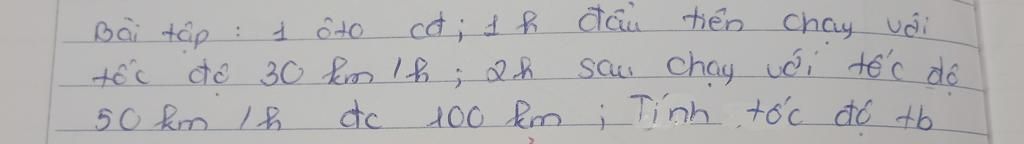 Bài tập : 1 ôtô cđ ; 1 h đầu tiên chạy với
tốc độ 30 km /h ; 2h sau chạy với tốc độ
50 km /h đc 100 km ; Tính tốc độ tb